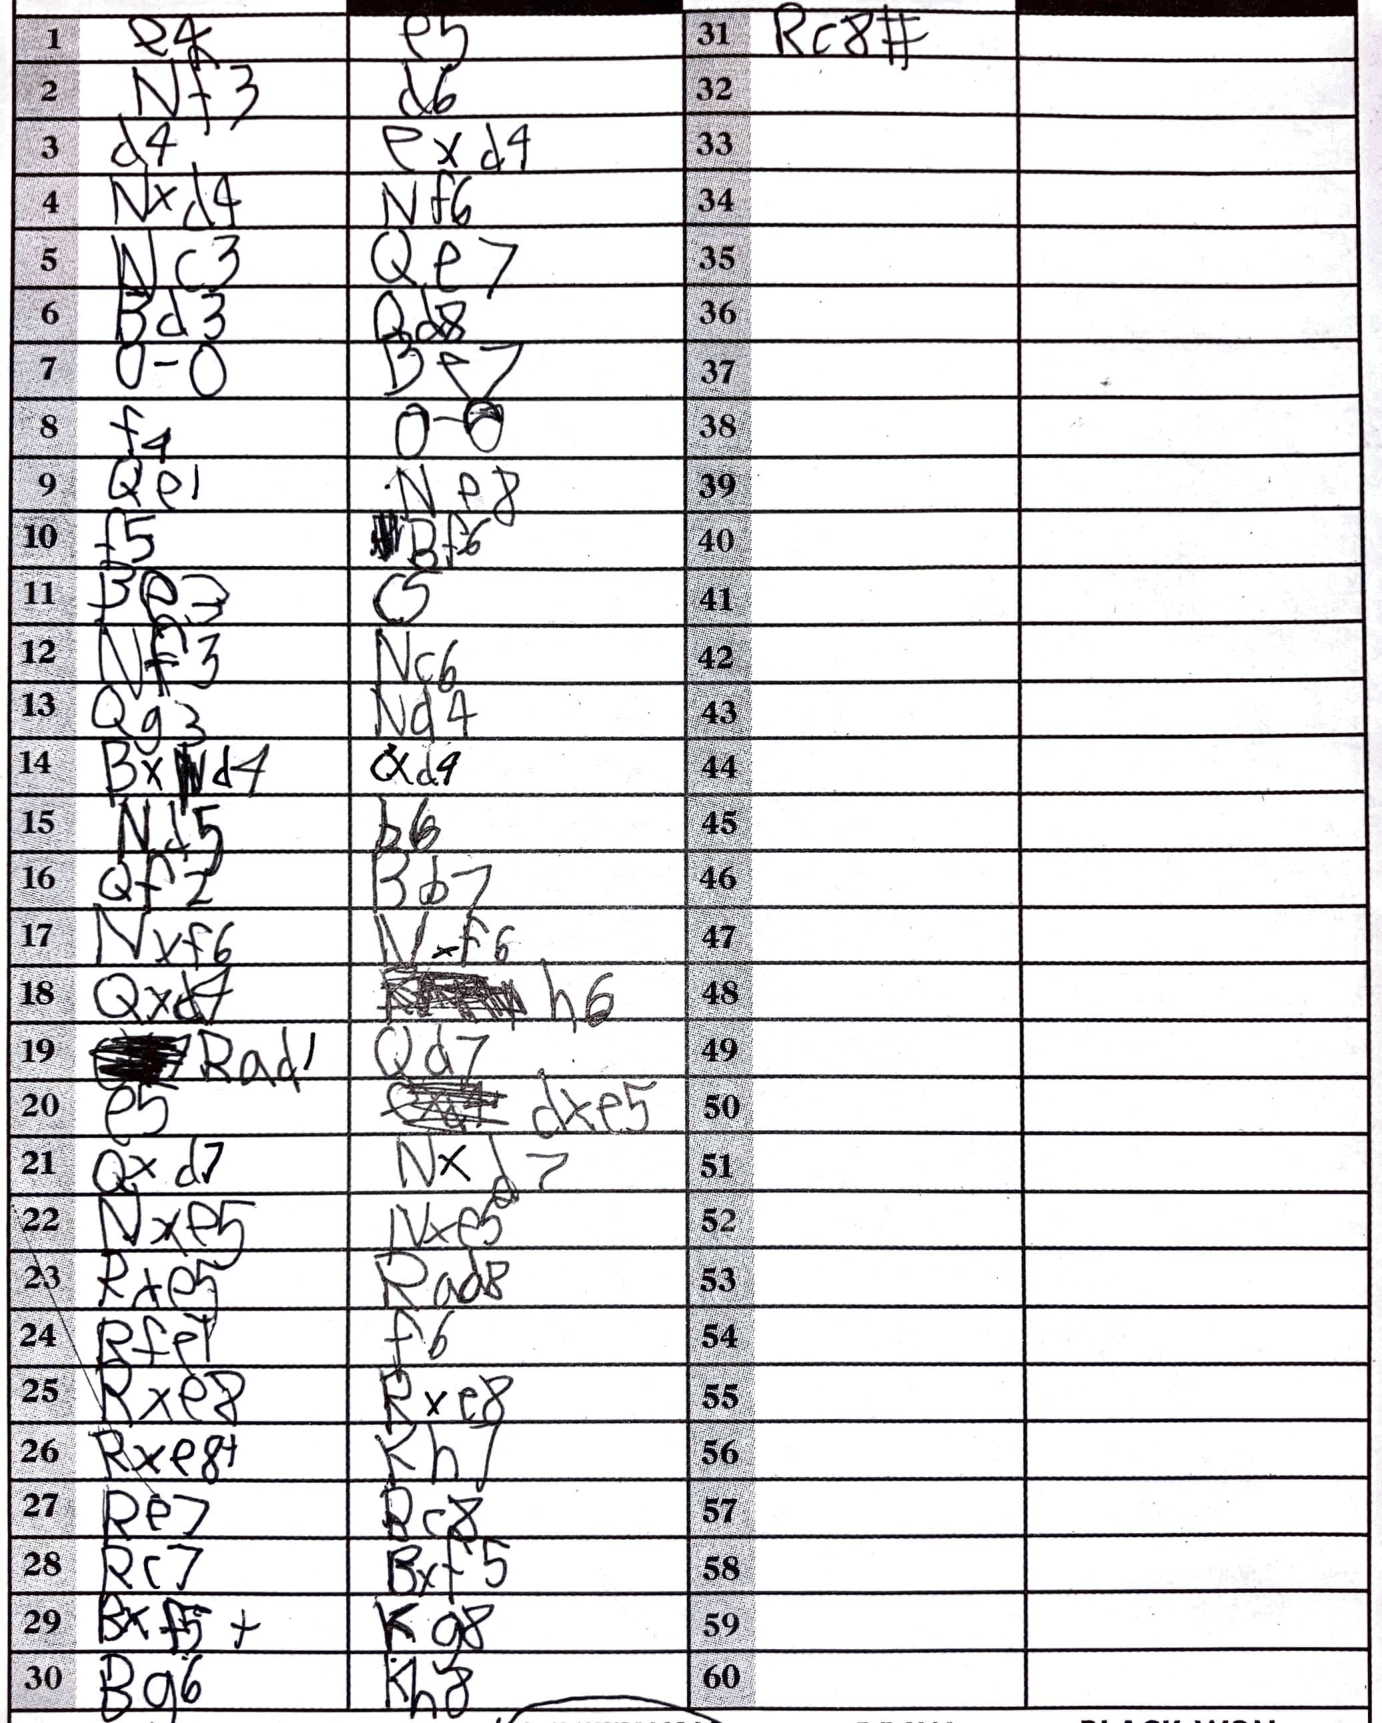 1 e4 e5 31 Rc8#
2 Nf3 d6 32
3 d4 exd4 33
4 Nxd4 Nf6 34
5 Nc3 Qe7 35
6 Bd3 Qd8 36
7 0-0 Be7 37
8 f4 0-0 38
9 Qe1 Ne8 39
10 f5 Bf6 40
11 Be3 c5 41
12 Nf3 Nc6 42
13 Qg3 Nd4 43
14 Bxd4 cxd4 44
15 Nd5 b6 45
16 Qf2 Bb7 46
17 Nxf6 Nxf6 47
18 Qxd4 h6 48
19 Rad1 Qd7 49
20 e5 dxe5 50
21 Qxd7 Nxd7 51
22 Nxe5 Nxe5 52
23 Rxe5 Rad8 53
24 Rfe1 f6 54
25 Rxe8 Rxe8 55
26 Rxe8+ Kh7 56
27 Re7 Bc8 57
28 Rc7 Bxf5 58
29 Bxf5+ Kg8 59
30 Bg6 Kh8 60